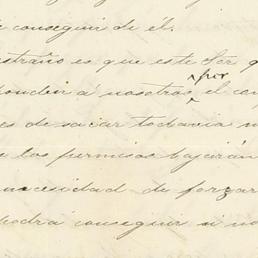 conseguir de él.
estraño es que este Ser q
ponder á nosotros, por el con
es de sacar todavia n
e los permisos bajarán
necesidad de forzar
podrá conseguir si no